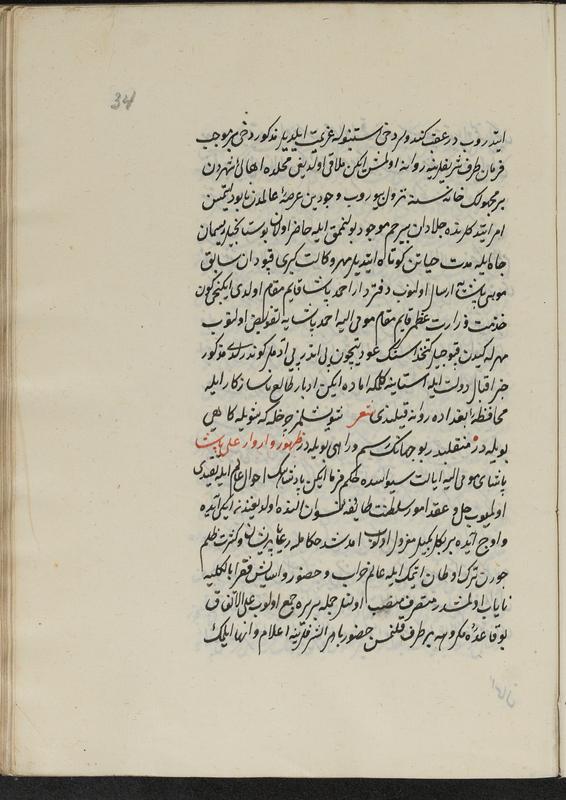 34
ایتدروب در عقب کندولر دخی استنبوله عزیمت ایلدیلر مذکور دخی بر موجب
فرمان طرف شریفلرینه روانه اولمش ایکن ملاقی اولدیغی محلده اهالئ شهردن
بر مجهولک خانه سنه نزول بیوروب وجودین عرصهٔ عالمدن نابود ایتمسن
امر ایتدکلرنده جلادان بیرحم موجود بولنمق ایله حاضر اولان بوستانجیلر ریسمان
جفا ایله مدت حیاتن کوتاه ایتدیلر مهر وکالت کبری قبودان سابق
موسی پاشایه ارسال اولنوب دفتردار احمد پاشا قایم مقام اولدی ایکنجی کون
خدمت وزارت عظمی قایم مقام مومی الیه احمد پاشایه تفویض اولنوب
مهرله کیدن قپوجیلر کتخداسنک عودتیچون پی در پی آدملر کوندرلدی مذکور
خبر اقبال دولت ایله استانه یه کلمکه اماده ایکن ادبار طالع ناسازکار ایله
محافظهٔ بغداده روانه قیلندی شعر نتویشلمز چرخله که بنویله کاهی
بویله در منقلبدر بو جهانک رسم و راهی بویله در ظهور واروار علی پاشا
پاشای مومی الیه ایالت سیواسده حکمفرما ایکن پادشاهک احوال عالم ایله تقیدی
اولمیوب حل و عقد امور سلطنت طایفهٔ نسوان النده اولدیغندن ایکی آیده
و اوچ آیده بر بکلربکیلر معزول اولوب آمد شد حکامله رعایا پریشان و کثرت ظلم
جوردن ترک اوطان ایتمک ایله عالم خراب و حضور و آسایش فقرا بالکلیه
نایاب اولمشدر متصرف منصب اولنلر جمله بر یره جمع اولوب علی الاتفاق
بو قاعدهٔ مکروهه بر طرف قلنمسن حضور باهر الشرفلرینه اعلام و انها ایلمک